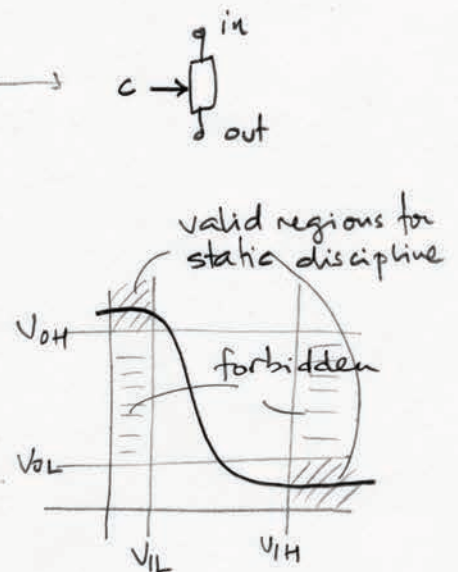 in
C
out
valid regions for
static discipline
VOH
forbidden
VOL
VIL
VIH